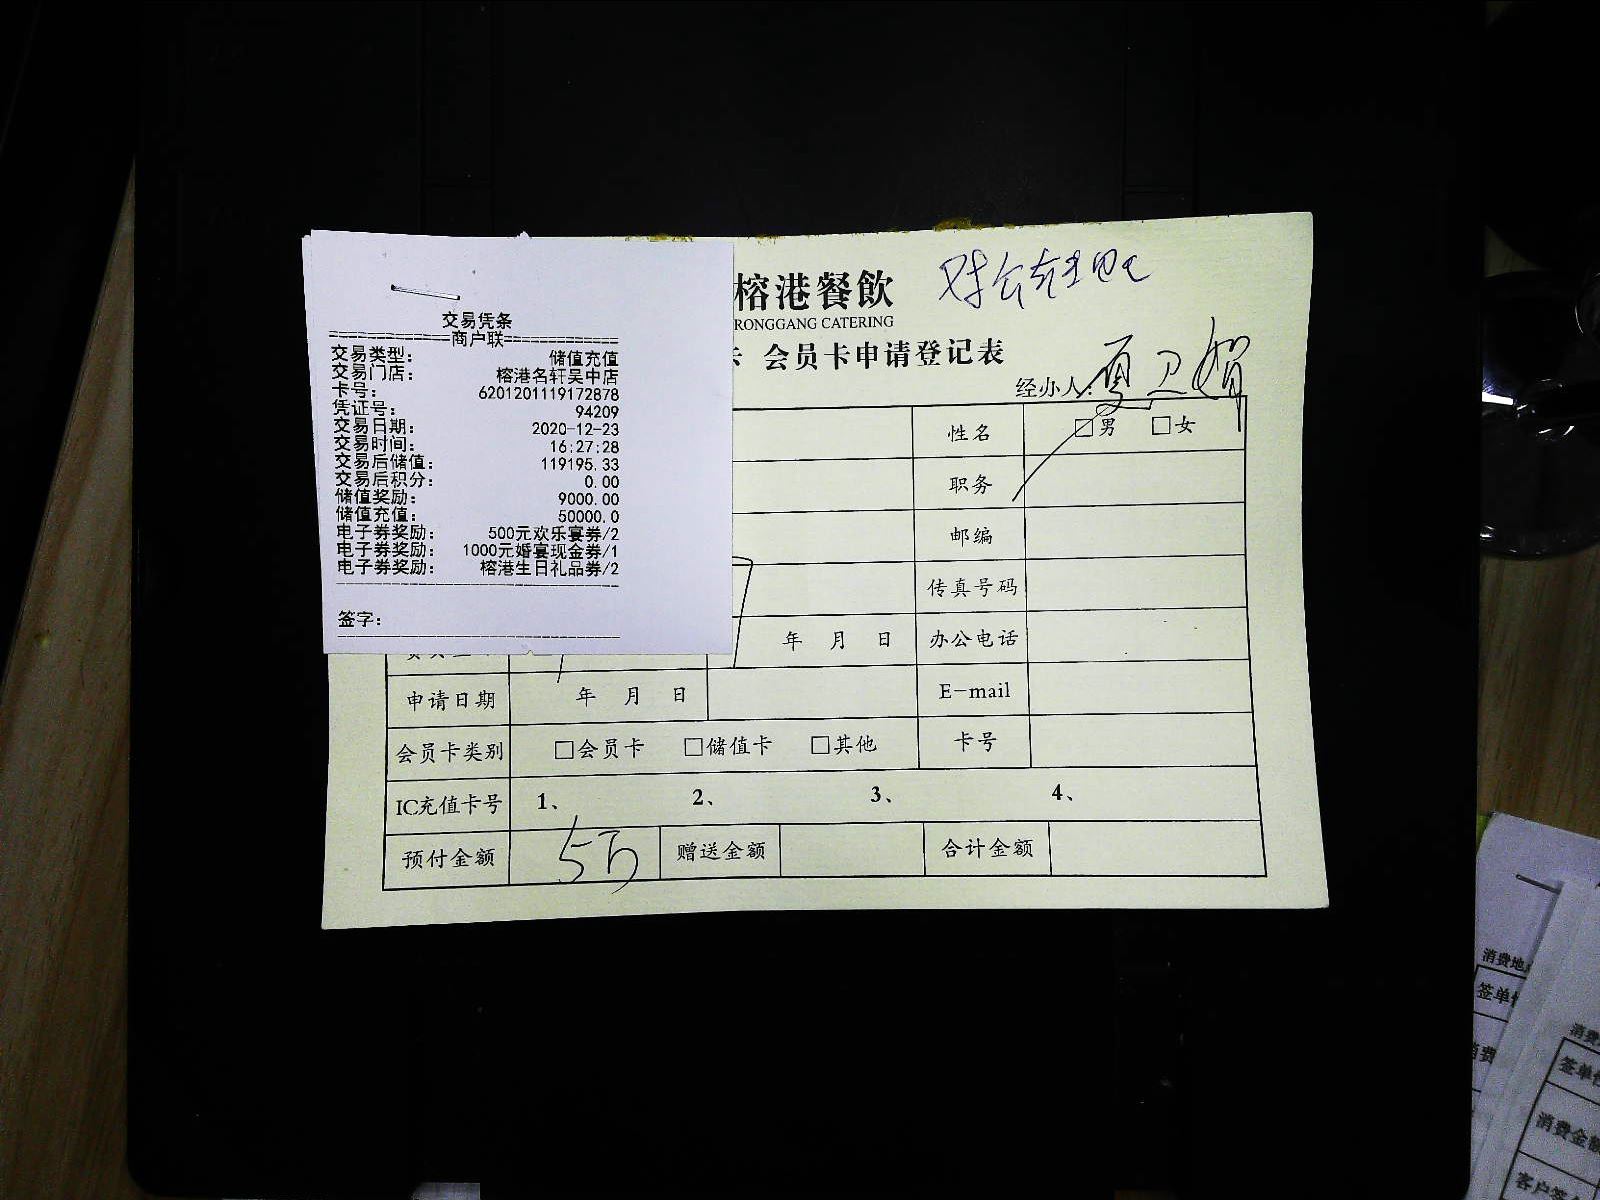 交易凭条
============商户联============
交易类型: 储值充值
交易门店: 榕港名轩吴中店
卡号: 6201201119172878
凭证号: 94209
交易日期: 2020-12-23
交易时间: 16:27:28
交易后储值: 119195.33
交易后积分: 0.00
储值奖励: 9000.00
储值充值: 50000.0
电子券奖励: 500元欢乐宴券/2
电子券奖励: 1000元婚宴现金券/1
电子券奖励: 榕港生日礼品券/2
签字:
榕港餐飲
RONGGANG CATERING
会员卡申请登记表
经办人: 夏卫娟
性名 □男 □女
职务
邮编
传真号码
年 月 日 办公电话
申请日期 年 月 日 E-mail
会员卡类别 □会员卡 □储值卡 □其他 卡号
IC充值卡号 1、 2、 3、 4、
预付金额 5万 赠送金额 合计金额
消费地
签单
消费
消费
签单
消费金额
客户签